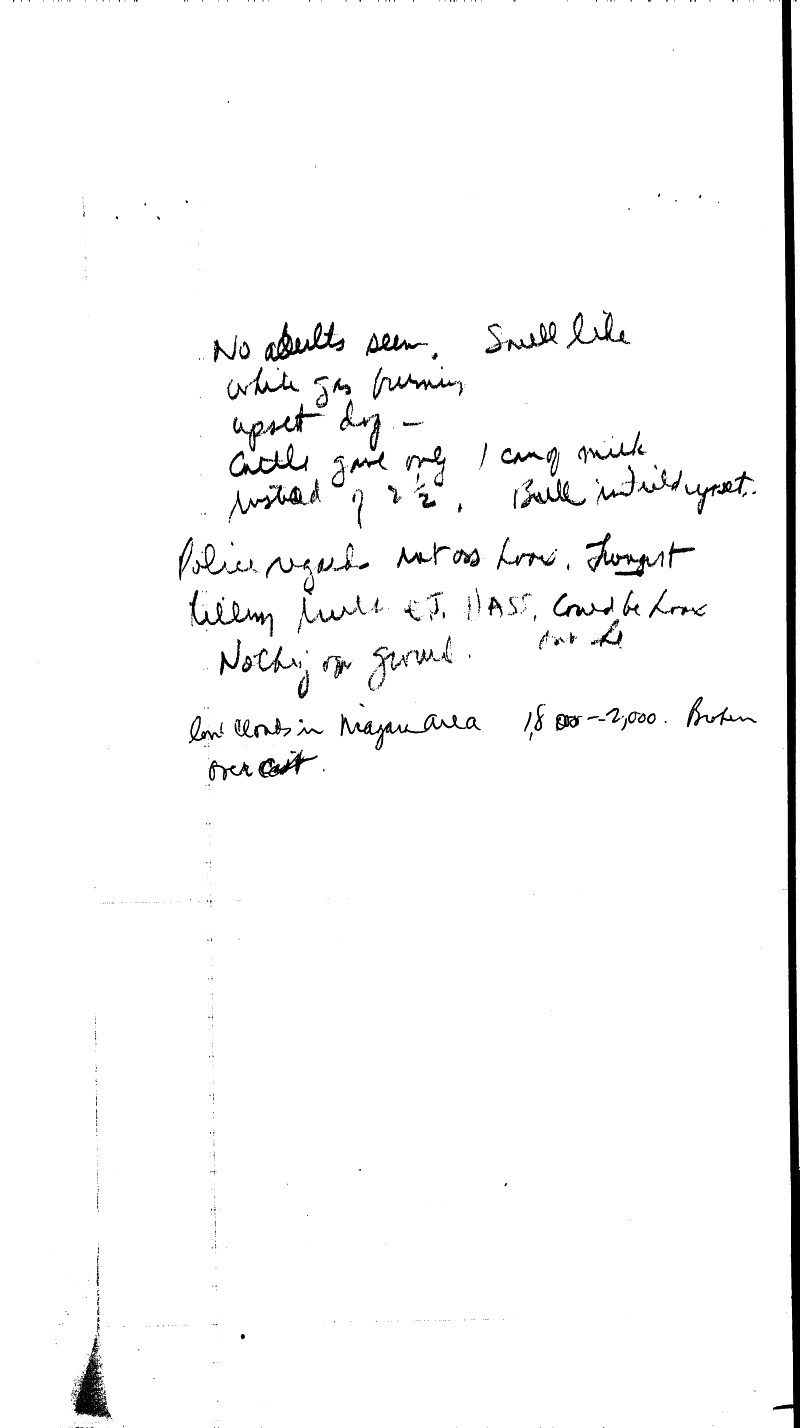 No adults seen. Smell like
white gas burning
upset dog —
Cattle gave only 1 can of milk
instead of 2 ½. Bull in field upset.
Police regards not as hoax.
Could be hoax
Nothing on ground. but
low clouds in Niagara area 1,800 - 2,000. Broken
overcast.